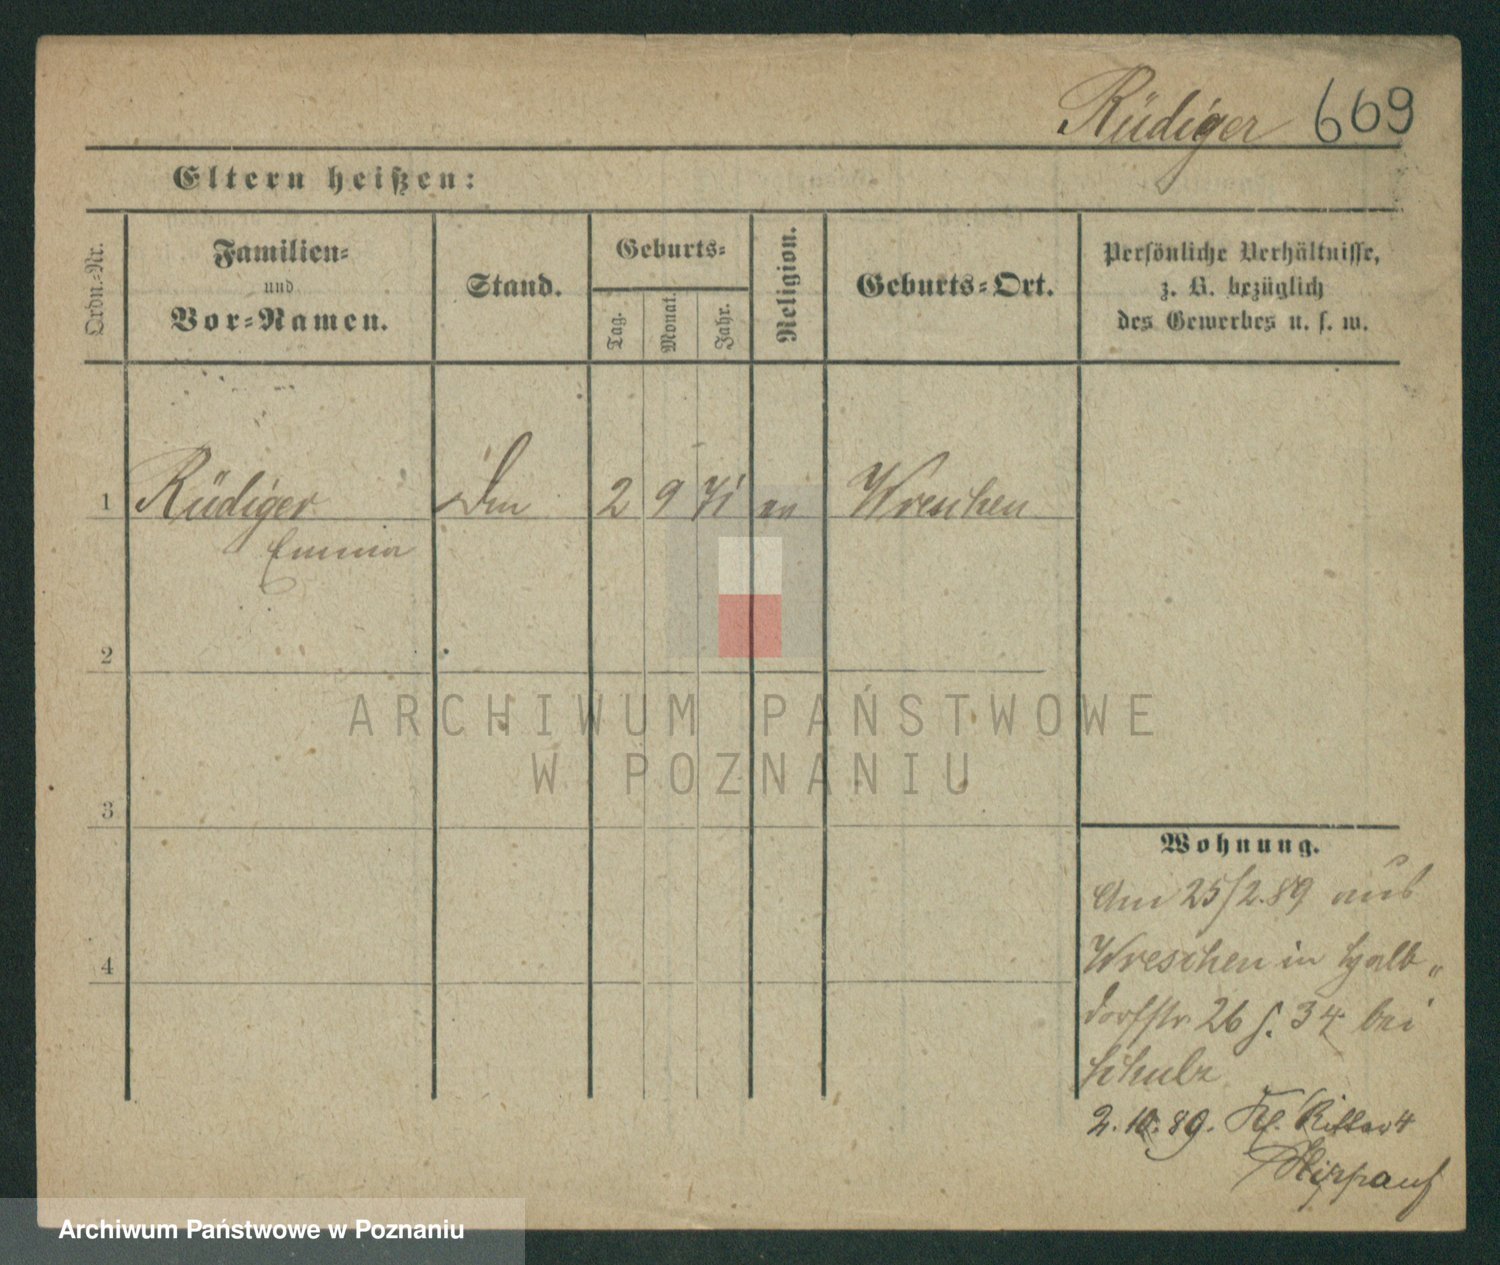 Rüdiger 669
Eltern heißen:
Ordn.-Nr.
Familien-
und
Vor-Namen.
Stand.
Geburts-
Tag.
Monat.
Jahr.
Religion.
Geburts-Ort.
Persönliche Verhältnisse,
z. B. bezüglich
des Gewerbes u. s. w.
1 Rüdiger 2 9 71 Wreschen
Emma
2
3
4
ARCHIWUM PAŃSTWOWE
W POZNANIU
Wohnung.
Am 25/2.89 aus
Wreschen in Halb„
dorfstr 26 f. 34 bei
Schulz
2.10.89. Kl. Ritter 4
Archiwum Państwowe w Poznaniu